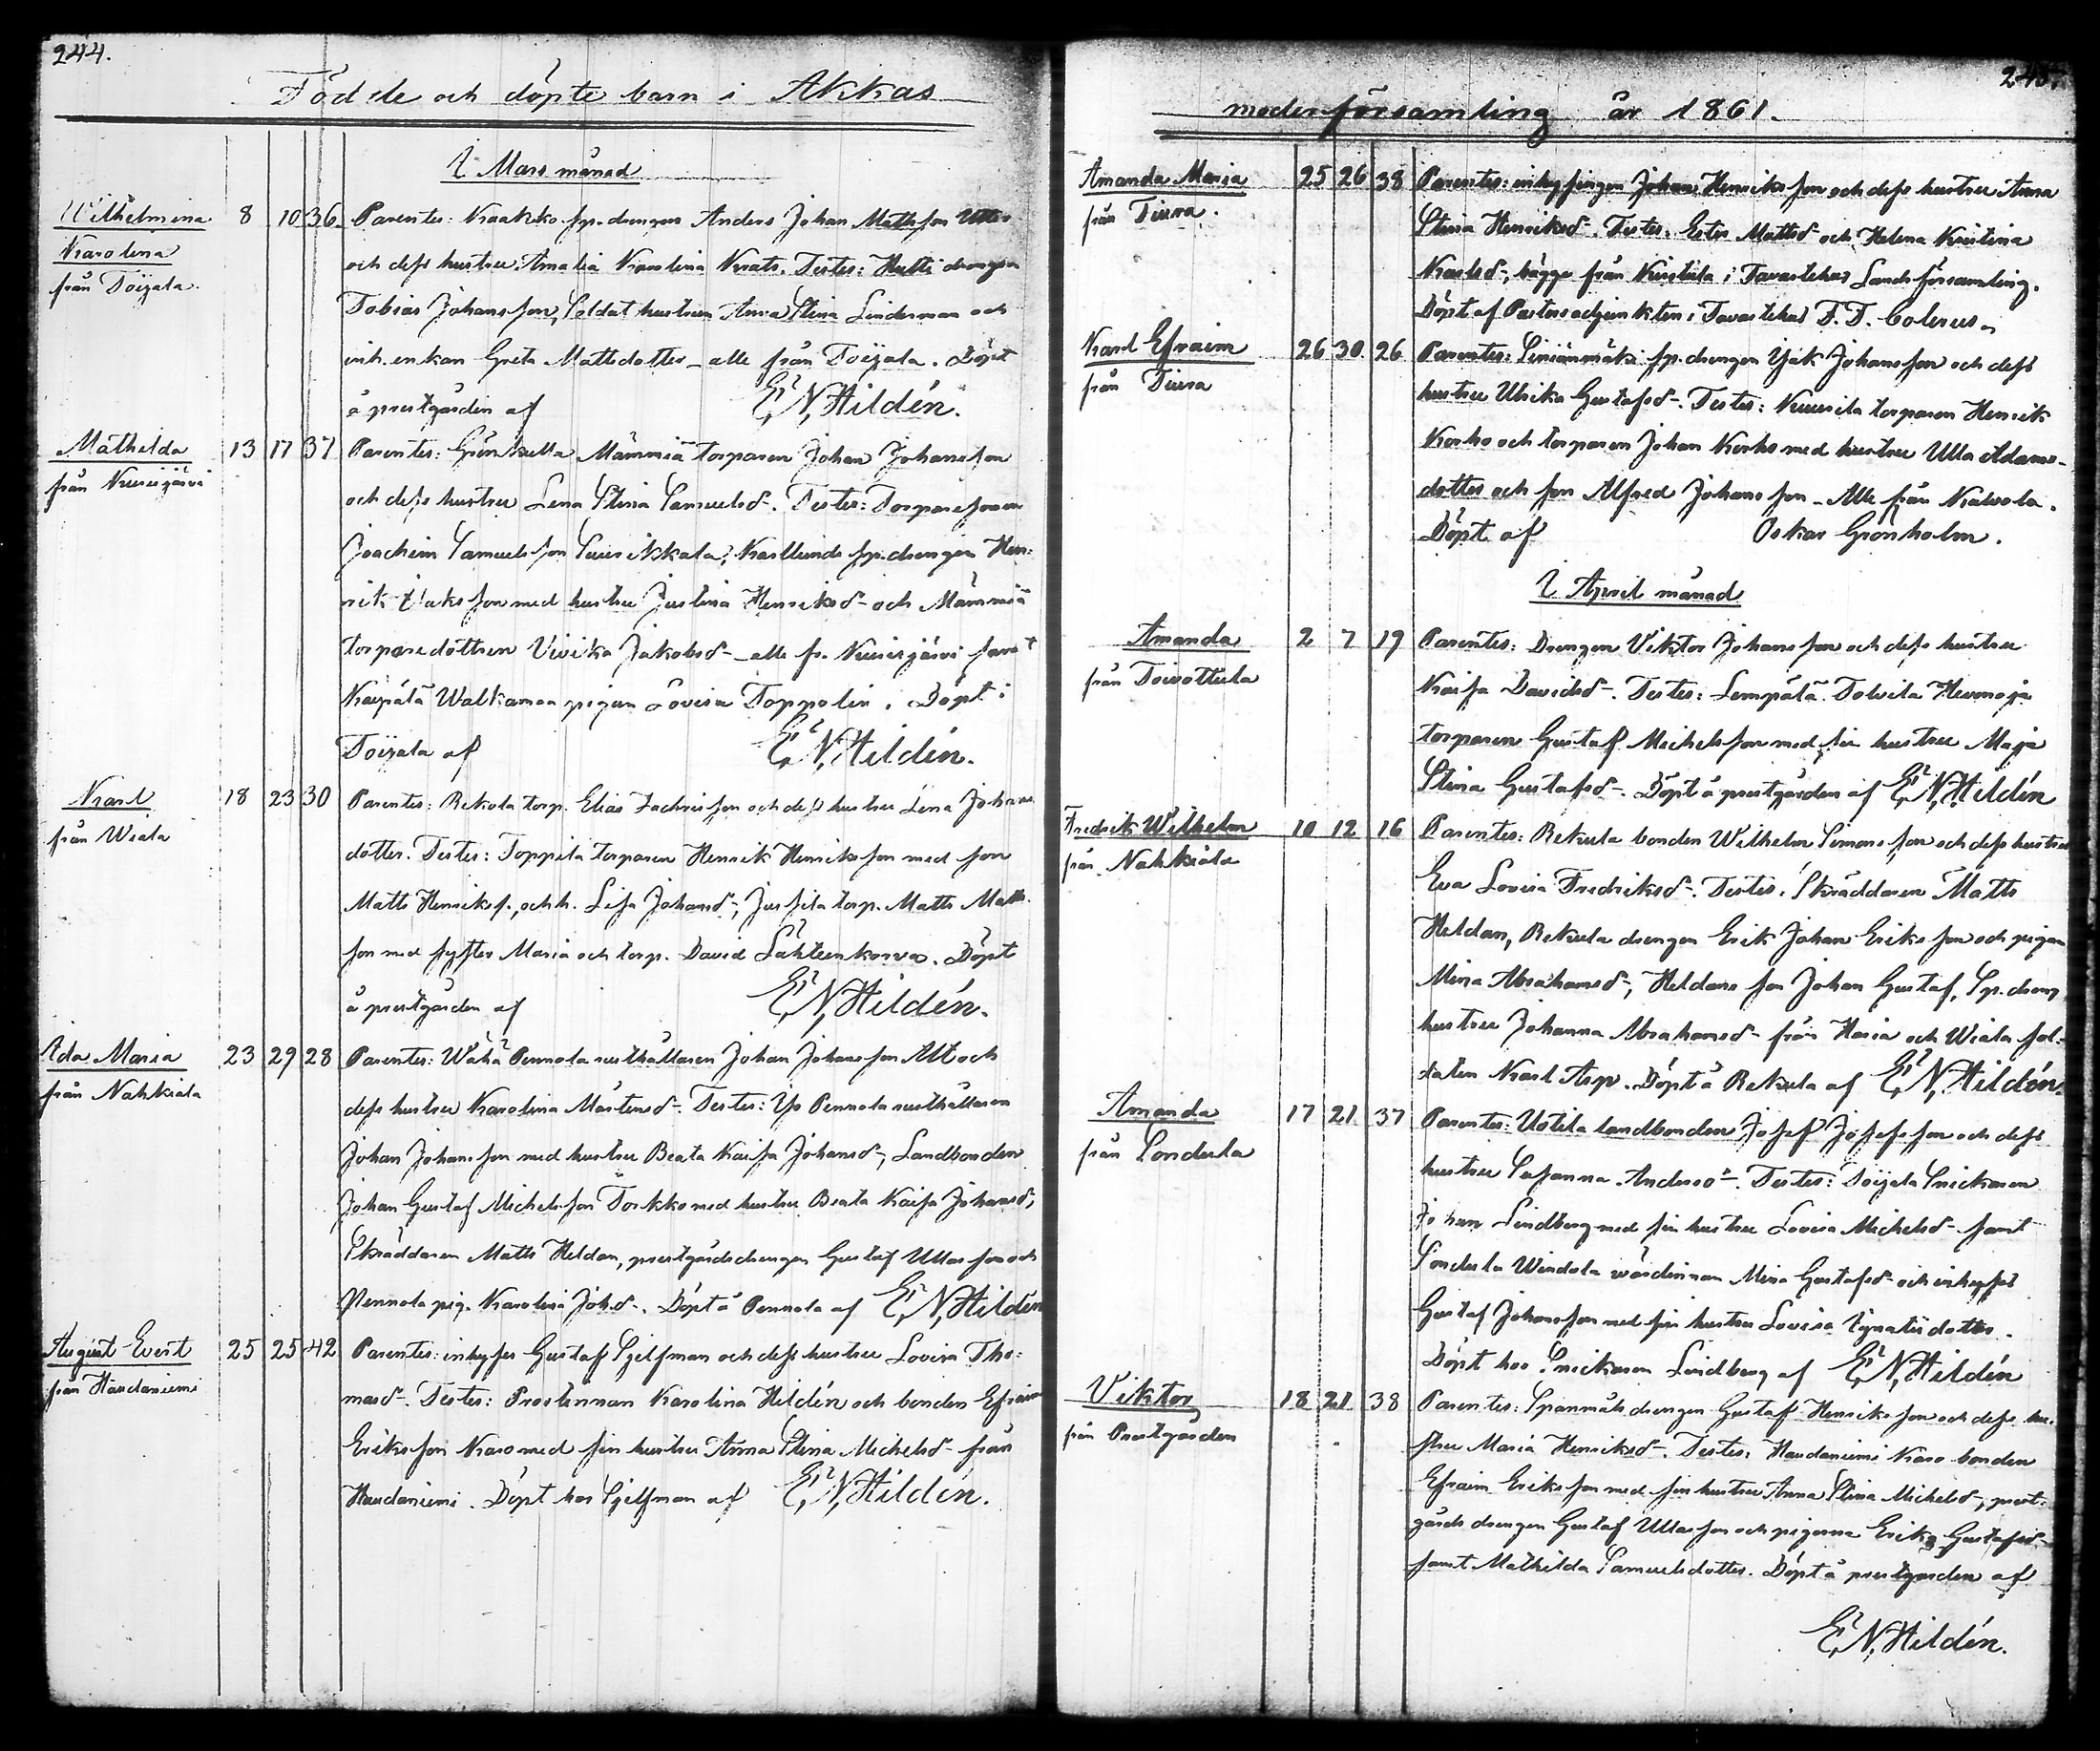 244.
Födde och döpte barn i Akkas
I Mars månad
Wilhelmina 8 10 36. Parentes: Kraakko sp.drengen Anders Johan Matsson
Karolina och dess hustru Amalia Karolina Knuts. Testes: Hutti drengen
från Toijala. Tobias Johansson, Soldat hustrun Anna Stina Linderman och
inh. enkan Greta Mattsdotter – alle från Toijala. Döpt
å prestgården af E. N. Hildén.
Mathilda 13 17 37 Parentes: Grönkulla Mämmiä torparen Johan Johansson
från Kurisjärvi och dess hustru Lena Stina Samuelsd-. Testes: Torparesonen
Joachim Samuelsson Suurikkala, Karllunds sp.drengen Hen-
rik Isaksson med hustru Justina Henriksd- och Mämmiä
torparedottren Vivika Jakobsd- – alle fr. Kurisjärvi samt
Walkaman pigan Lovisa Toppolin. Döpt i
Toijala af E. N. Hildén.
Karl 18 23 30 Parentes: Rekola torp. Elias Zachrisson och dess hustru Lena Johans-
från Wiala dotter. Testes: Toppila torparen Henrik Henriksson med son
Matts Henrikss., och h. Lisa Johansd-, Jussila torp. Matts Matts-
son med syster Maria och torp. David Lähteenkorva. Döpt
å prestgården af E. N. Hildén.
Ida Maria 23 29 28 Parentes: Wähä Pennola rusthållaren Johan Johansson Alt och
från Nahkiala dess hustru Karolina Mårtensd-. Testes: Iso Pennola rusthållaren
Johan Johansson med hustru Beata Kaisa Johansd-, Landbonden
Johan Gustaf Michelsson Torkko med hustru Beata Kaisa Johansd-,
Skräddaren Matts Heldan, prestgårdsdrengen Gustaf Ullasson och
Pennola pig. Karolina Johsd-. Döpt å Pennola af E. N. Hildén
August Evert 25 25 42 Parentes: inhyses Gustaf Sjelfman och dess hustru Lovisa Tho-
från Haudaniemi masd-. Testes: Prostinnan Karolina Hildén och bonden Efraim
Eriksson Karo med sin hustru Anna Stina Michelsd- från
Haudaniemi. Döpt hos Sjelfman af E. N. Hildén.
245.
moderförsamling år 1861.
Amanda Maria 25 26 38 Parentes: inhysingen Johan Henriksson och dess hustru Anna
från Tiura. Stina Henriksd-. Testes: Ester Mattsd och Helena Kristina
Karlsd-, bägge från i Tavastehus Landsförsamling.
Döpt af Pastorsadjunkten i Tavastehus F. F. Colerus.
Karl Efraim 26 30 26 Parentes: Liniänmäki sp.drengen Isak Johansson och dess
från Tiura hustru Ulrika Gustafsd-. Testes: Kuurila torparen Henrik
Korho och torparen Johan Korho med hustru Ulla Adams-
dotter och son Alfred Johansson – Alle från Kalvola.
Döpt af Oskar Grönholm.
I April månad
Amanda 2 7 19 Parentes: Drengen Viktor Johansson och dess hustru
från Toivottula Kaisa Davidsd-. Testes: Lempälä Tolvila Heumoja
torparen Gustaf Michelsson med sin hustru Maja
Stina Gustafsd-. Döpt å prestgården af E. N. Hildén
Fredrik Wilhelm 10 12 16 Parentes: Rekula bonden Wilhelm Simonsson och dess hustru
från Nahkiala Eva Lovisa Fredriksd-. Testes: Skräddaren Matts
Heldan, Rekula drengen Erik Johan Eriksson och pigan
Mina Abrahamsd-, Heldans son Johan Gustaf, Sp.dreng
hustru Johanna Abrahamsd- från Haria och Wiala sol-
daten Karl Asp. Döpt å Rekula af E. N. Hildén.
Amanda 17 21 37 Parentes: Uotila landbonden Josef Josefsson och dess
från Sonderla hustru Susanna Andersd-. Testes: Toijala Snickaren
Johan Lindberg med sin hustru Lovisa Michelsd- samt
Sonderla Windola värdinnan Mina Gustafsd- och inhyses
Gustaf Johansson med sin hustru Lovisa Ignatiidotter.
Döpt hos Snickaren Lindberg af E. N. Hildén
Viktor 18 21 38 Parentes: Spannmåls drengen Gustaf Henriksson och dess hu-
från Prestgården stru Maria Henriksd-. Testes: Haudaniemi Karo bonden
Efraim Eriksson med sin hustru Anna Stina Michelsd-, prest-
gårds drengen Gustaf Ullasson och pigorna Erika Gustafsd-
samt Mathilda Samuelsdotter. Döpt å prestgården af
E. N. Hildén.